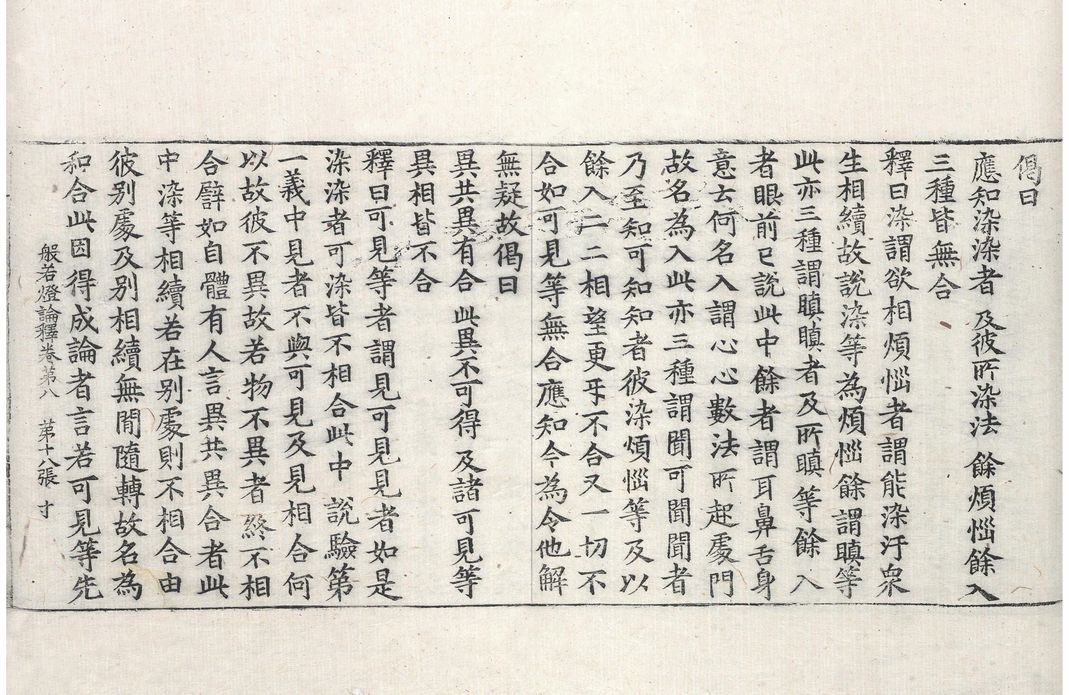 偈曰
應知染染者 及彼所染法 餘煩惱餘入
三種皆無合
釋曰染謂欲相煩惱者謂能染汙衆
生相續故說染等為煩惱餘謂瞋等
此亦三種謂瞋瞋者及所瞋等餘入
者眼前已說此中餘者謂耳鼻舌身
意云何名入謂心心數法所起處門
故名為入此亦三種謂聞可聞聞者
乃至知可知知者彼染煩惱等及以
餘入二二相望更互不合又一切不
合如可見等無合應知今為令他解
無疑故偈曰
異共異有合 此異不可得 及諸可見等
異相皆不合
釋曰可見等者謂見可見見者如是
染染者可染皆不相合此中說驗第
一義中見者不與可見及見相合何
以故彼不異故若物不異者終不相
合譬如自體有人言異共異合者此
中染等相續若在別處則不相合由
彼別處及別相續無間隨轉故名為
和合此因得成論者言若可見等先
般若燈論釋卷第八 第十八張 寸